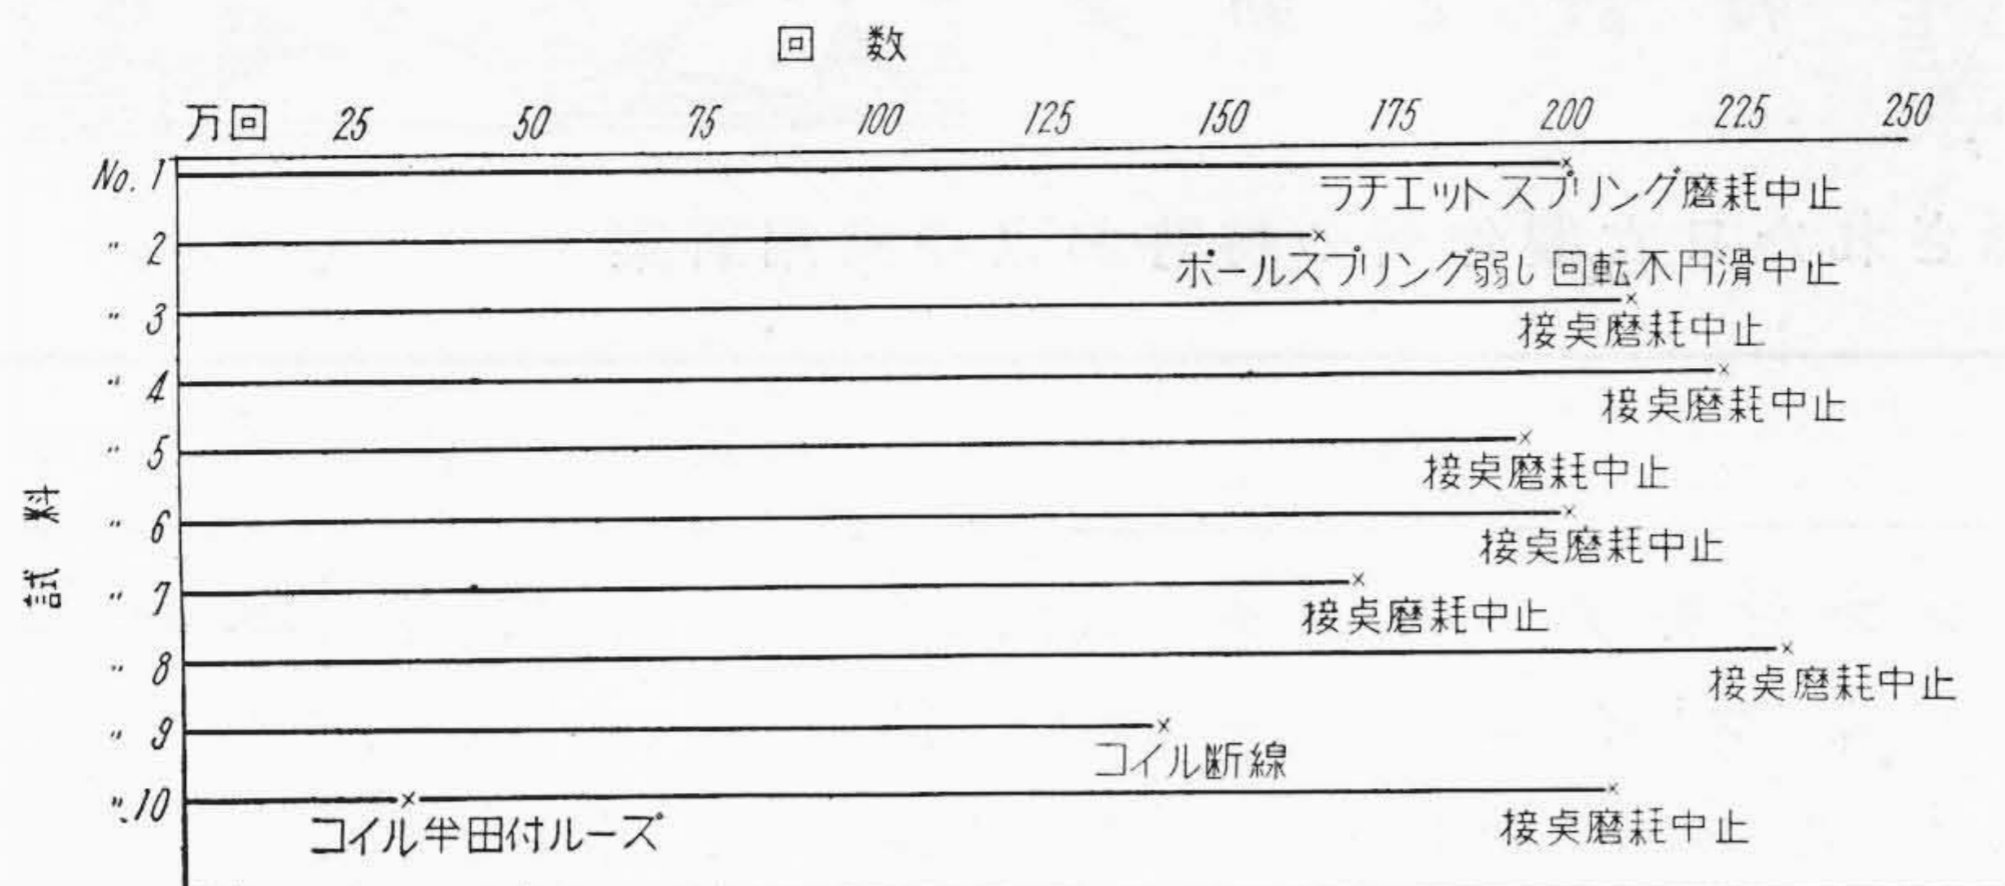 回数
万回 25 50 75 100 125 150 175 200 225 250
No. 1
ラチエットスプリング磨耗中止
〃 2
ポールスプリング弱し回転不円滑中止
〃 3
接点磨耗中止
〃 4
接点磨耗中止
〃 5
接点磨耗中止
試料
〃 6
接点磨耗中止
〃 7
接点磨耗中止
〃 8
接点磨耗中止
〃 9
コイル断線
〃 10
コイル半田付ルーズ 接点磨耗中止